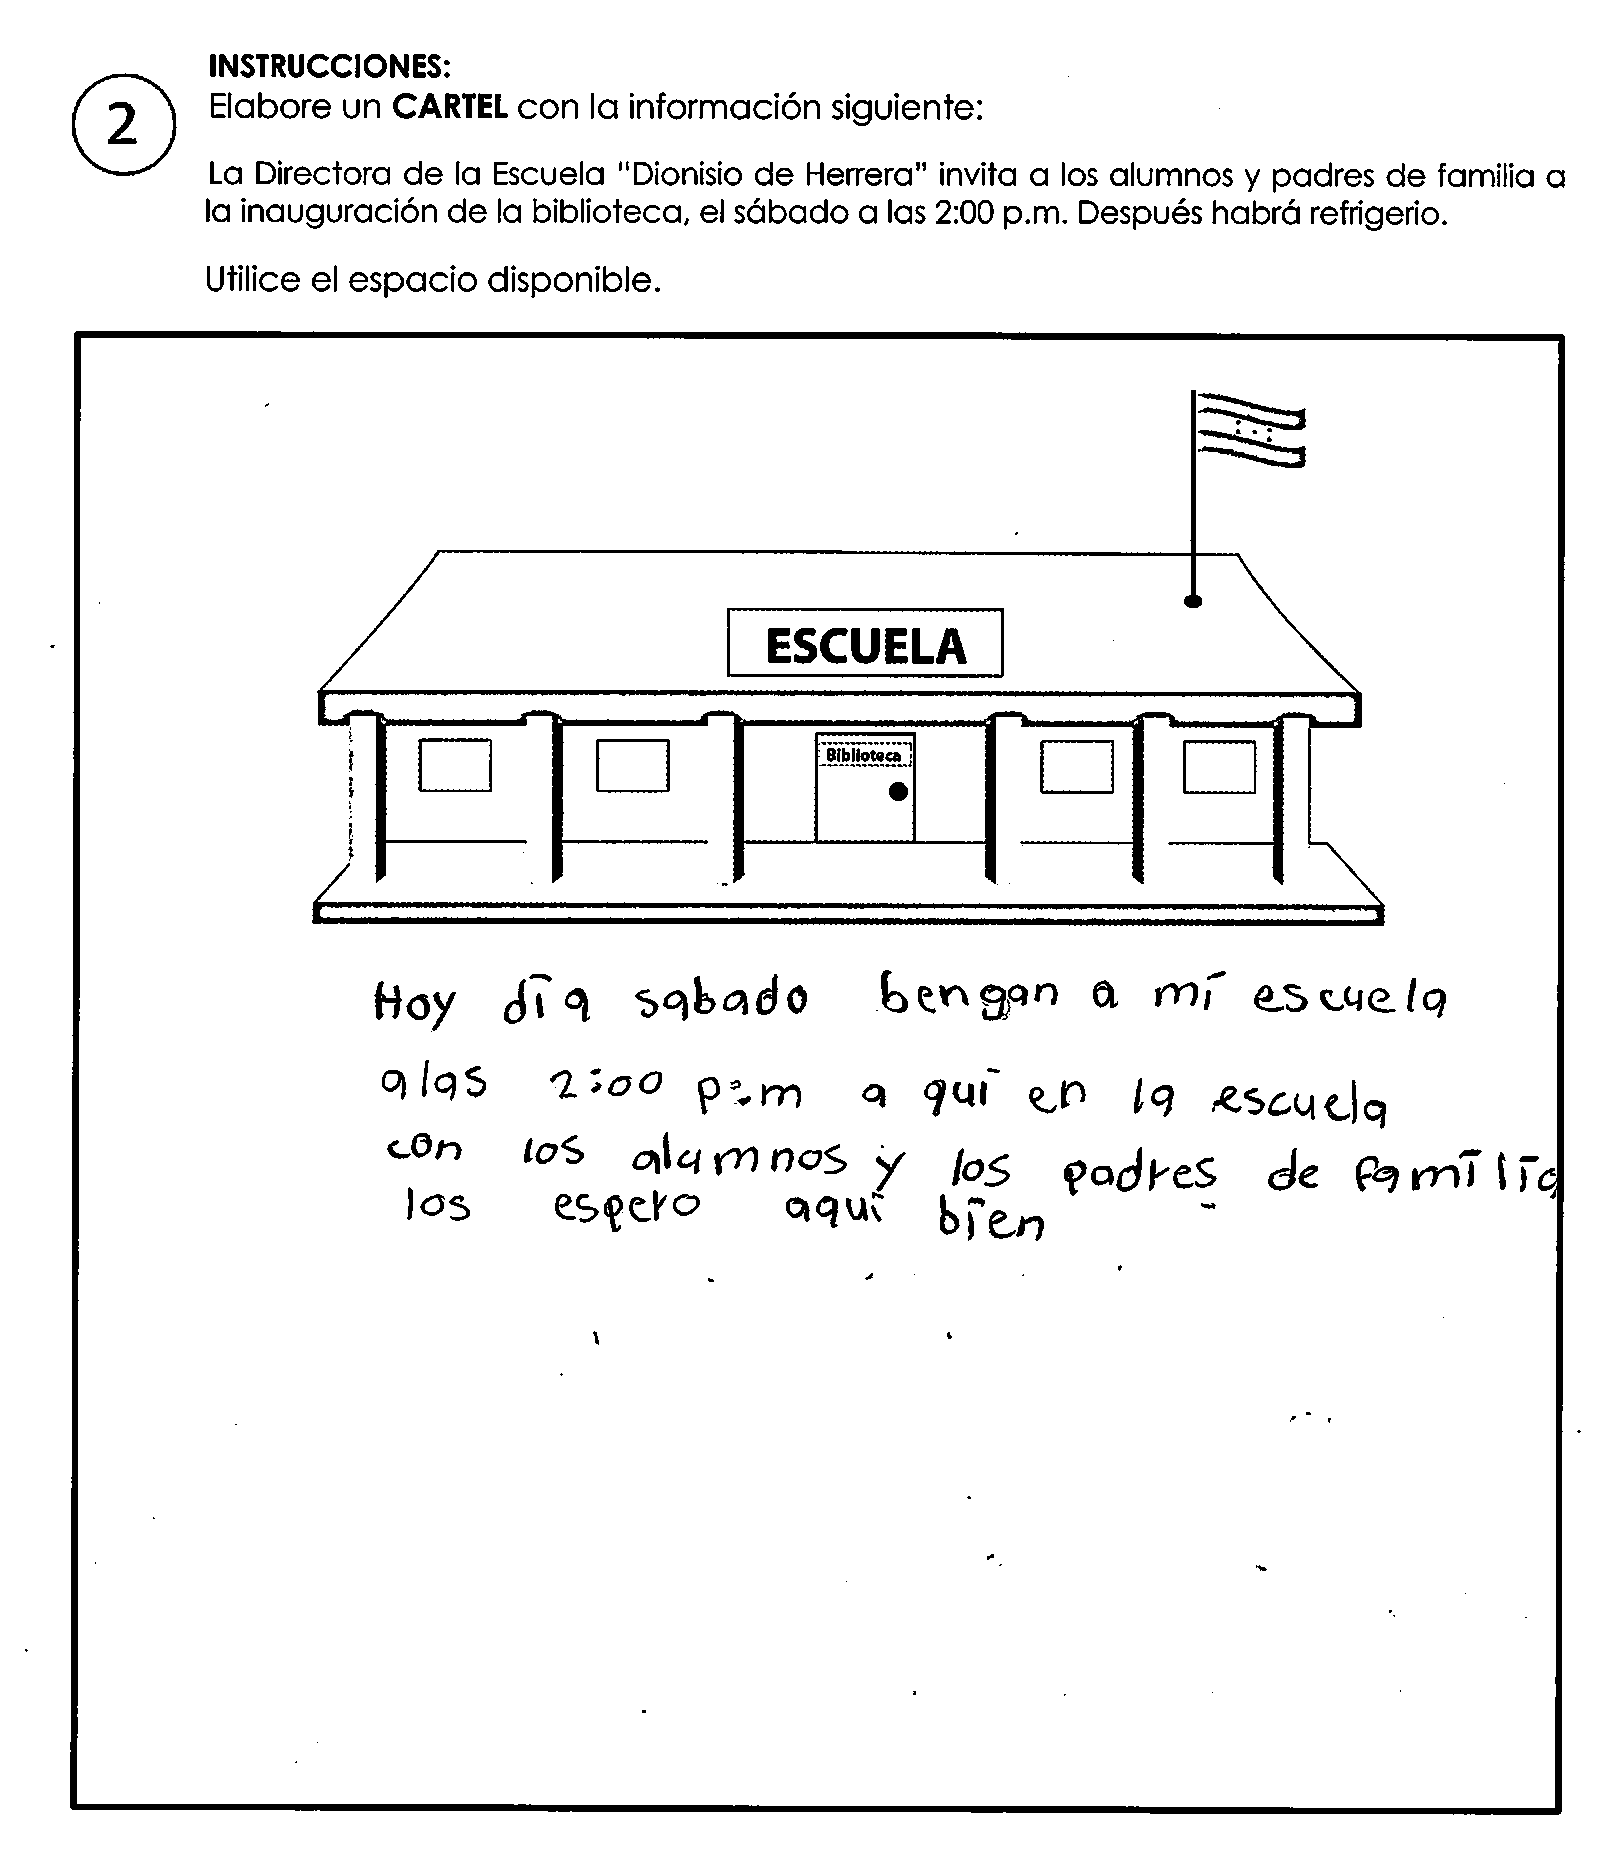 INSTRUCCIONES:
2
Elabore un CARTEL con la información siguiente:
La Directora de la Escuela "Dionisio de Herrera" invita a los alumnos y padres de familia a
la inauguración de la biblioteca, el sábado a las 2:00 p.m. Después habrá refrigerio.
Utilice el espacio disponible.
ESCUELA
Biblioteca
Hoy día sabado bengan a mí escuela
alas 2:00 p:m a quí en la escuela
con los alumnos y los padres de família
los espero aquí bíen